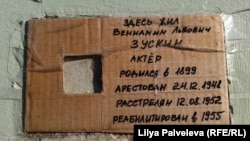 ЗДЕСЬ ЖИЛ
ВЕНИАМИН ЛЬВОВИЧ
ЗУСКИН
АКТЁР
РОДИЛСЯ В 1899
АРЕСТОВАН 24.12.1948
РАССТРЕЛЯН 12.08.1952
РЕАБИЛИТИРОВАН В 1955
Lilya Palveleva (RFE/RL)